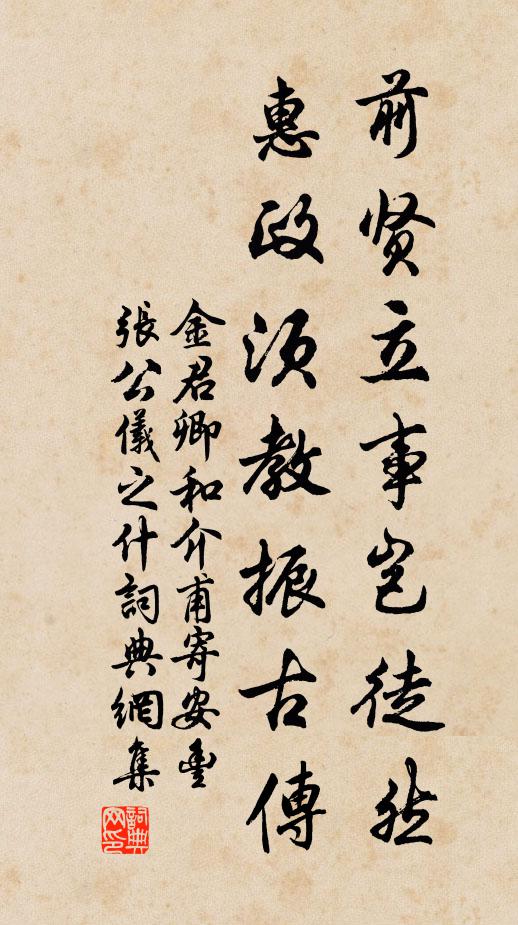 前贤立事岂徒然
惠政须教振古傳
金君卿和介甫寄安豐
張公儀之什詞典網集
詞典网印